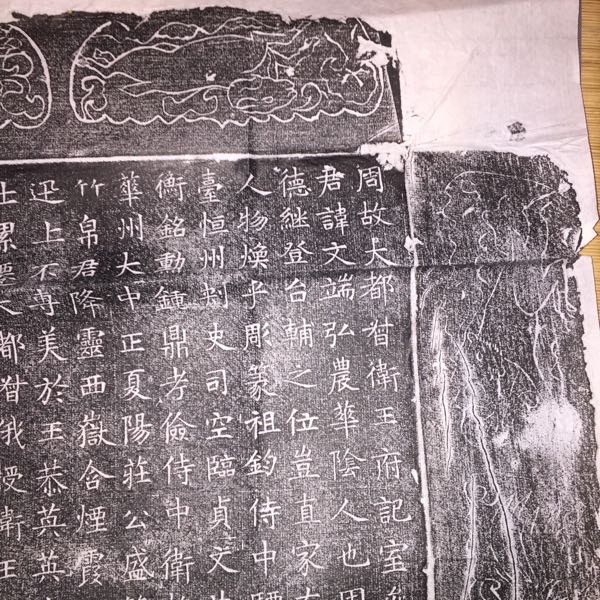 周故大都督衛王府記室
君諱文端弘農華陰人也周
德継登台輔之位豈直家
人物煥乎彫篆祖鈞侍中驃
臺恒州刾史司空臨貞文
衡銘動鍾鼎考儉侍中衛
華州大中正夏陽莊公盛
竹帛君降靈西嶽含煙霞
迅上不專美於王恭英英
士累遷大都督俄授衛王